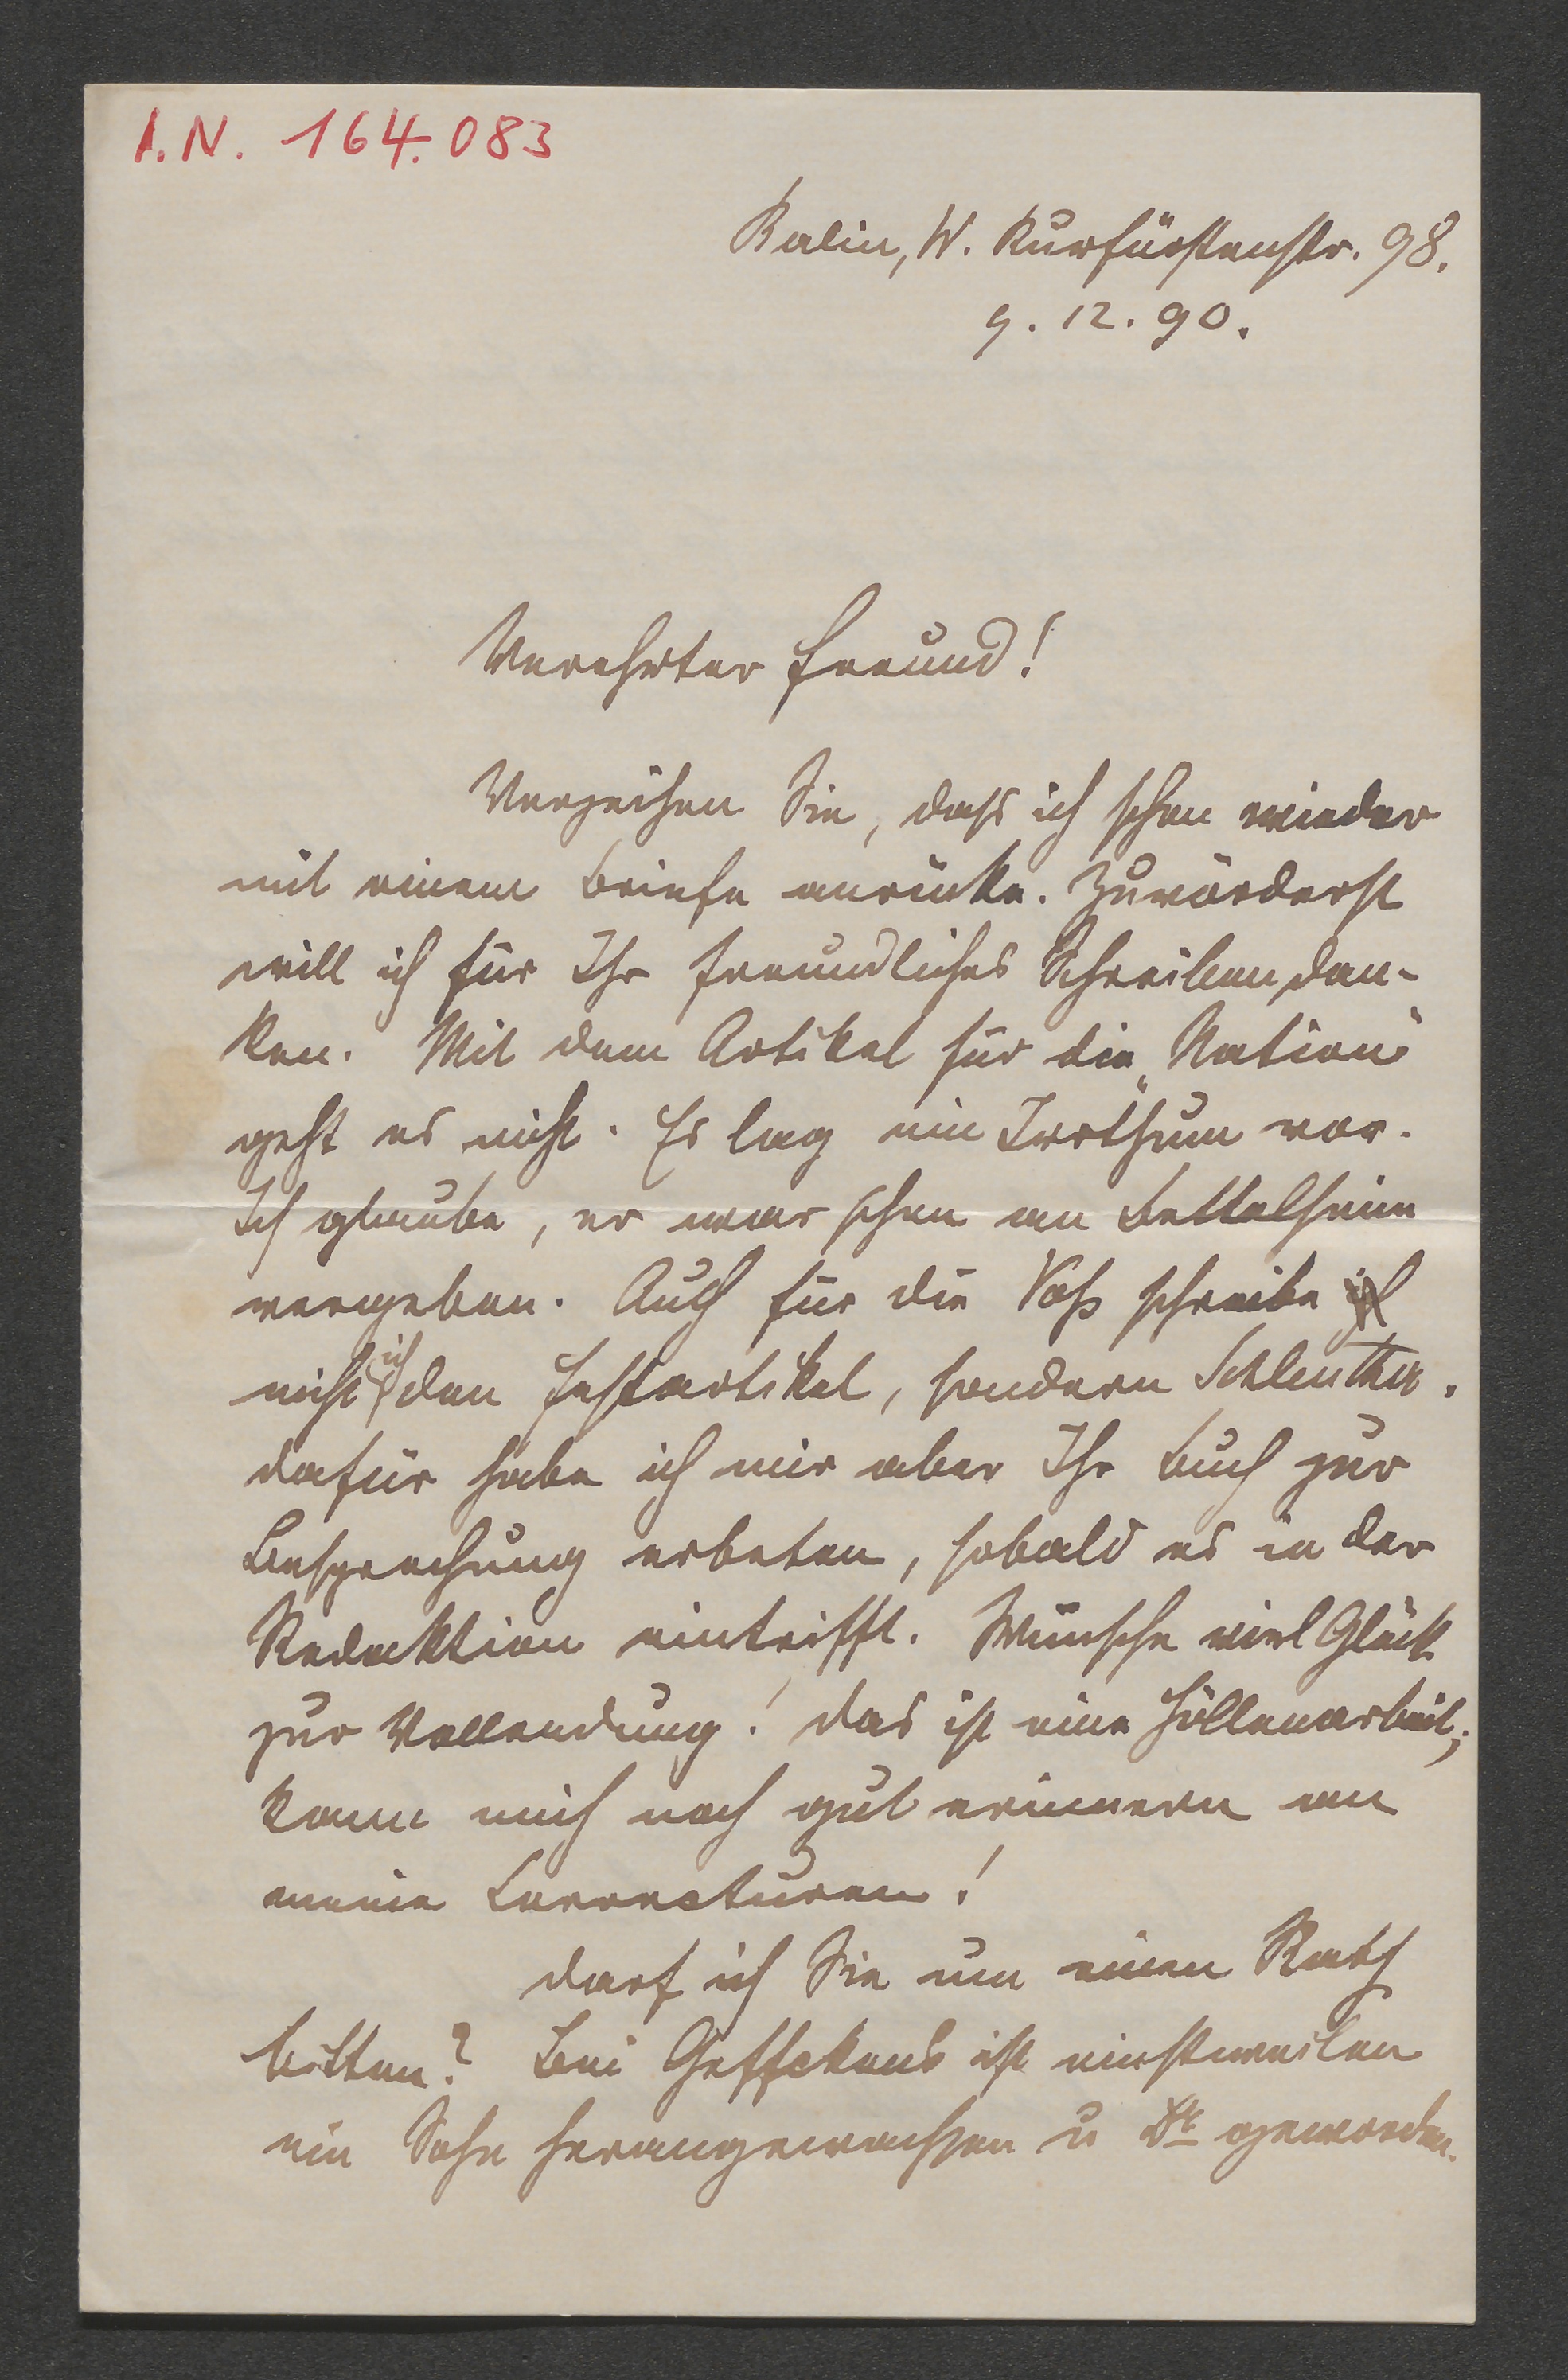 I.N. 164.083
Berlin, W. Kurfürstenstr. 98.
9. 12. 90.
Verehrter Freund!
Verzeihen Sie, daß ich schon wieder
mit einem Briefe anrücke. Zuvörderst
will ich für Ihr freundliches Schreiben dan-
ken. Mit dem Artikel für die „Nation“
geht es nicht. Es lag ein Irrthum vor.
Ich glaube, er war schon an Bettelheim
vergeben. Auch für die Voß schreibe ich
nicht ich den Festartikel, sondern Schlenther.
Dafür habe ich mir aber Ihr Buch zur
Besprechung erbeten, sobald es in der
Redaktion eintrifft. Wünsche viel Glück
zur Vollendung! Das ist eine Höllenarbeit;
kann mich noch gut erinnern an
meine Correcturen!
Darf ich Sie um einen Rath
bitten? Bei Geffckens ist einstweilen
ein Sohn herangewachsen u Dr geworden.